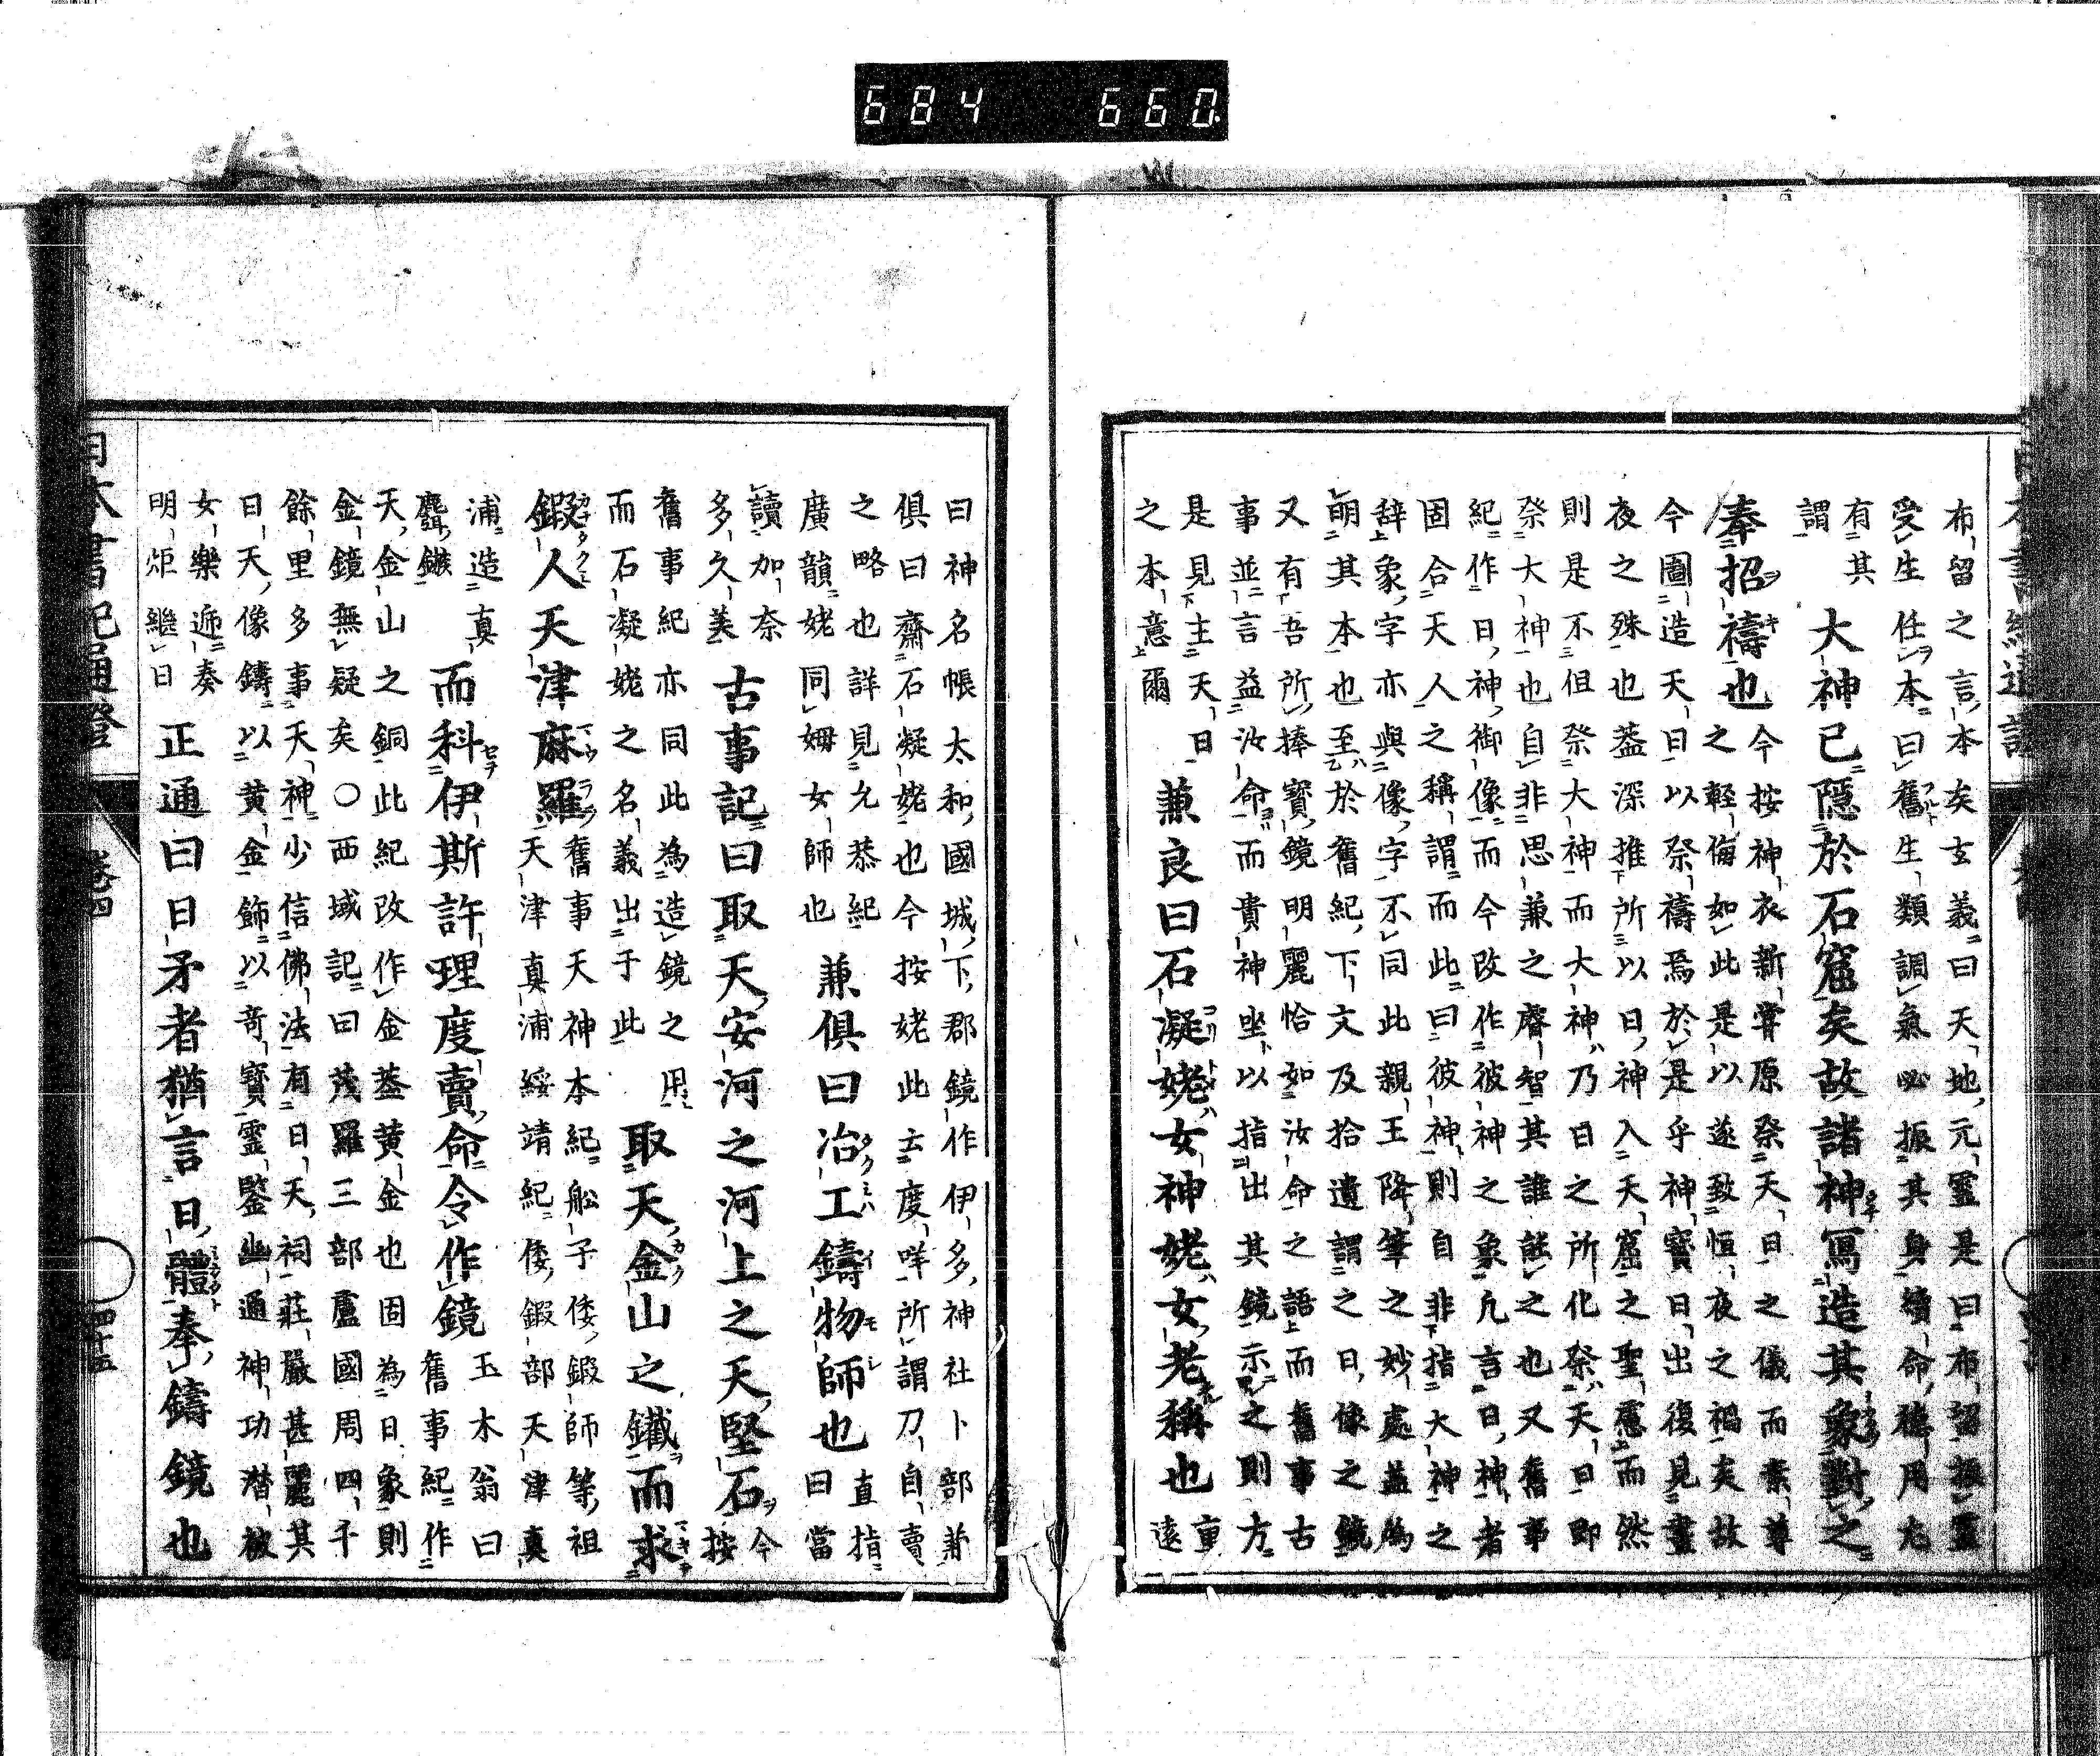 684 660
布留之言本矣玄義曰天地元靈是曰布留振靈
受生任本曰舊生類調氣必振其身續命德用尤
有其
謂
大神已隱於石窟矣故諸神寫造其象對之
奉招禱也
今按神衣新嘗原祭天日之儀而素尊
之輕侮如此是以遂致恒夜之禍矣故
今圖造天日以祭禱焉於是乎神寶日出復見晝
夜之殊也蓋深推所以日神入天窟之聖慮而然
則是不但祭大神而大神乃日之所化祭天日即
祭大神也自非思兼之睿智其誰能之也又舊事
紀作日神御像而今改作彼神之象凡言日神者
固合天人之稱謂而此曰彼神則自非指大神之
辭象字亦與像字不同此親王降筆之妙處蓋為
明其本也至於舊紀下文及拾遺謂之日像之鏡
又有吾所捧寶鏡明麗恰如汝命之語而舊事古
事並言益汝命而貴神坐以指出其鏡示之則方
是見主天日
之本意爾
兼良曰石凝姥女神姥女老稱也
重
遠
曰神名帳太和國城下郡鏡作伊多神社卜部兼
俱曰齋石凝姥也今按姥此云度咩所謂刀自賣
之略也詳見允恭紀
廣韻姥同姆女師也
兼俱曰冶工鑄物師也
直指
曰當
讀加奈
多久美
古事記曰取天安河之河上之天堅石
今
按
舊事紀亦同此為造鏡之用
而石凝姥之名義出于此
取天金山之鐵而求
鍛人天津麻羅
舊事天神本紀船子倭鍛師等祖
天津真浦綏靖紀倭鍛部天津真
浦造真
麛鏃
而科伊斯許理度賣命令作鏡
玉木翁曰
舊事紀作
天金山之銅此紀改作金蓋黄金也固為日象則
金鏡無疑矣○西域記曰茂羅三部盧國周四千
餘里多事天神少信佛法有日天祠莊嚴甚麗其
日天像鑄以黄金飾以奇寶靈鑒幽通神功潛被
女樂遞奏
明炬繼日
正通曰日矛者猶言日體奉鑄鏡也
日本書紀通證
卷四
四十五